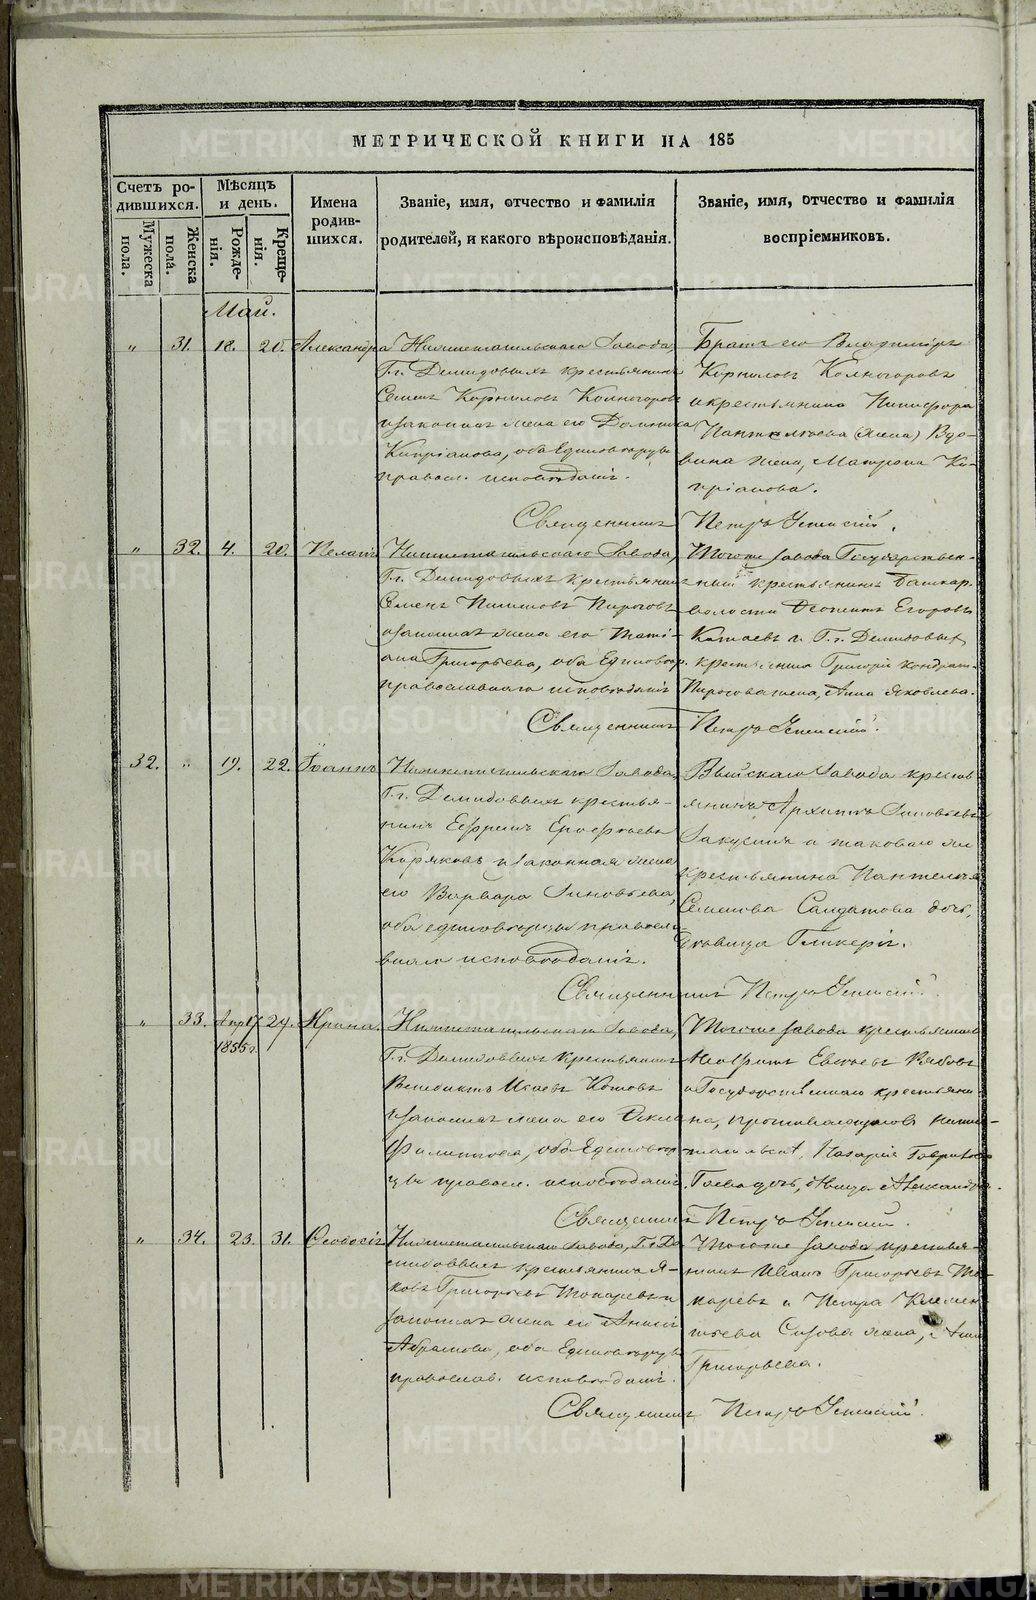 МЕТРИЧЕСКОЙ КНИГИ НА 185
Счетъ ро-
дившихся.
Мѣсяцъ
и день.
Имена
родив-
шихся.
Званіе, имя, отчество и фамилія
родителей, и какого вѣроисповѣданія.
Званіе, имя, отчество и фамилія
воспріемниковъ.
Мужеска
пола.
Женска
пола.
Рожде-
нія.
Креще-
нія.
Май.
„ 31. 18. 20. Александра
Нижнетагильскаго Завода,
Г.г. Демидовыхъ крестьянинъ
Семенъ Корниловъ Колногоровъ
и законная жена его Домника
Кипріанова, оба Единовѣрцы
правосл. исповѣданія.
Братъ его Владиміръ
Корниловъ Колногоровъ
и крестьянина Никифора
Пантелѣева (жена) Вдо-
вина жена, Матрона Ки-
пріанова.
Священникъ Петръ Успенскій.
„ 32. 4. 20. Пелагія
Нижнетагильскаго Завода,
Г.г. Демидовыхъ крестьянинъ
Семенъ Пироговъ
и законная жена его Тати-
ана Григорьева, оба Единовѣр.
православнаго исповѣданія
Тогоже завода Государствен-
ный крестьянинъ Башкар.
волости Егоровъ
Катаевъ и Г.г. Демидовыхъ
крестьянина Григорія Кондрат.
Пирогова жена, Анна Яковлева.
Священникъ Петръ Успенскій.
32. „ 19. 22. Іоаннъ
Нижнетагильскаго Завода,
Г.г. Демидовыхъ крестья-
нинъ Ефремъ Ерофѣевъ
Коряковъ и законная жена
его Варвара Зиновьева,
оба единовѣрцы правосла-
внаго исповѣданія.
Выйскаго Завода кресть
янинъ Архипъ Зиновьевъ
и таковаго же
крестьянина Пантелея
Семенова Салдатова дочь,
дѣвица Гликерія.
Священникъ Петръ Успенскій.
„ 33. Апр. 17 24. Ирина
1855 г.
Нижнетагильскаго Завода,
Г.г. Демидовыхъ крестьянинъ
Венедиктъ Исаевъ Котовъ
и законная жена его Ѳекла
Филиппова, оба Единовѣр
цы правосл. исповѣданія.
Тогоже завода крестьянинъ
Евсѣевъ Рябовъ
и Государственнаго крестьяни
на, проживающаго въ Нижне-
тагильскѣ, Назарія
дочь, дѣвица Александра.
Священникъ Петръ Успенскій.
„ 34. 23. 31. Ѳеодосія
Нижнетагильскаго Завода, Г.г. Де
мидовыхъ крестьянинъ Я-
ковъ Григорьевъ Токаревъ и
законная жена его Анисія
Абрамова, оба Единовѣрцы
православ. исповѣданія.
Тогоже завода крестья-
нинъ Иванъ Григорьевъ То-
каревъ и Петра Клемен
тьева Сизова жена, Анна
Григорьева.
Священникъ Петръ Успенскій.
METRIKI.GASO-URAL.RU